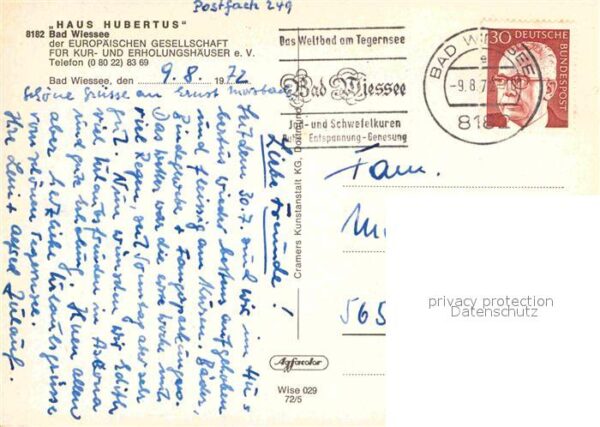 Postfach 249
„HAUS HUBERTUS"
8182 Bad Wiessee
der EUROPÄISCHEN GESELLSCHAFT
FÜR KUR- UND ERHOLUNGSHÄUSER e. V.
Telefon (0 80 22) 83 69
Bad Wiessee, den 9.8. 1972
Schöne Grüsse an Ernst
Liebe Freunde!
Seit dem 30.7. sind wir im Hu-
bertus wieder bestens aufgehoben
und fleissig am Kuren. Bäder,
Bindegewebe + Fangopackungen.
Das Wetter war die erste Woche mit
viel Regen, seit Sonntag aber sehr
gut. Nun wünschen wir Edith
viel Urlaubsfreuden in Ascona
und gute Erholung. Ihnen allen
aber herzliche Urlaubsgrüsse
vom schönen Tegernsee.
Ihre Leni + Alfred
Das Weltbad am Tegernsee
Bad Wiessee
Jod- und Schwefelkuren
Entspannung - Genesung
BAD WIESSEE
-9.8.72
818
30 DEUTSCHE
BUNDESPOST
Cramers Kunstanstalt KG, Dortmund
Agfacolor
Wise 029
72/5
Fam.
565
privacy protection
Datenschutz